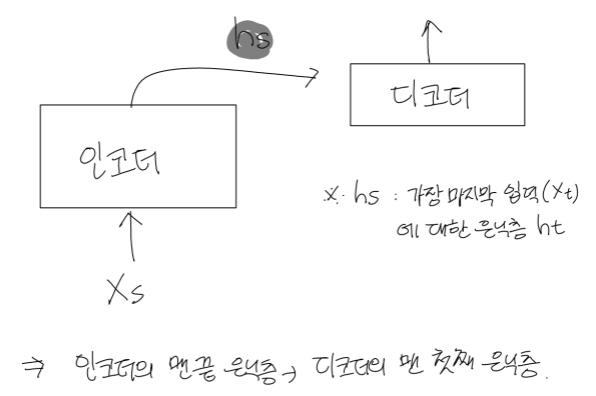 hs
디코더
인코더
※ hs : 가장 마지막 입력(Xt)
에 대한 은닉층 ht
Xs
⇒ 인코더의 맨끝 은닉층→ 디코더의 맨 첫째 은닉층.